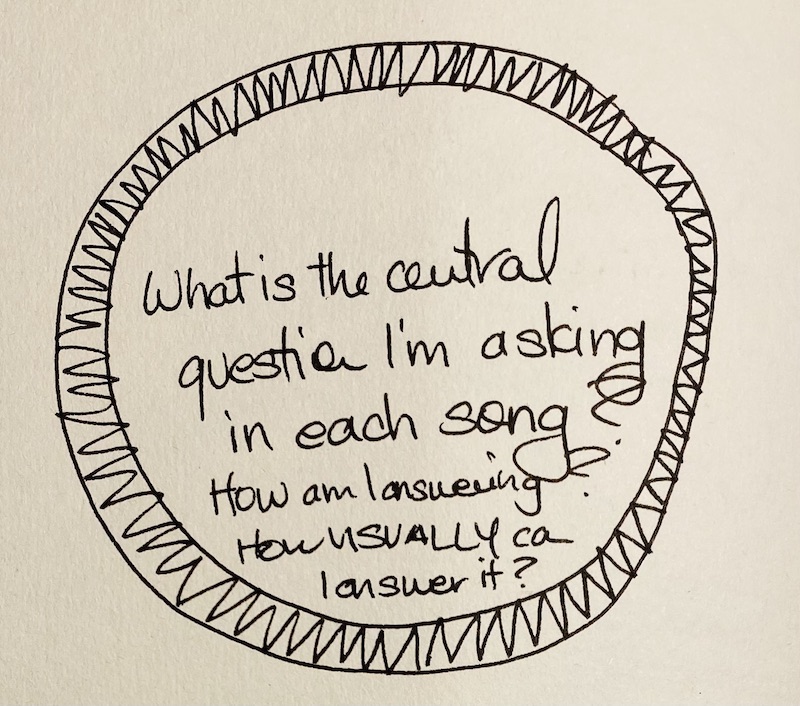 What is the central
question I'm asking
in each song?
How am I answering?
How USUALLY ca
I answer it?